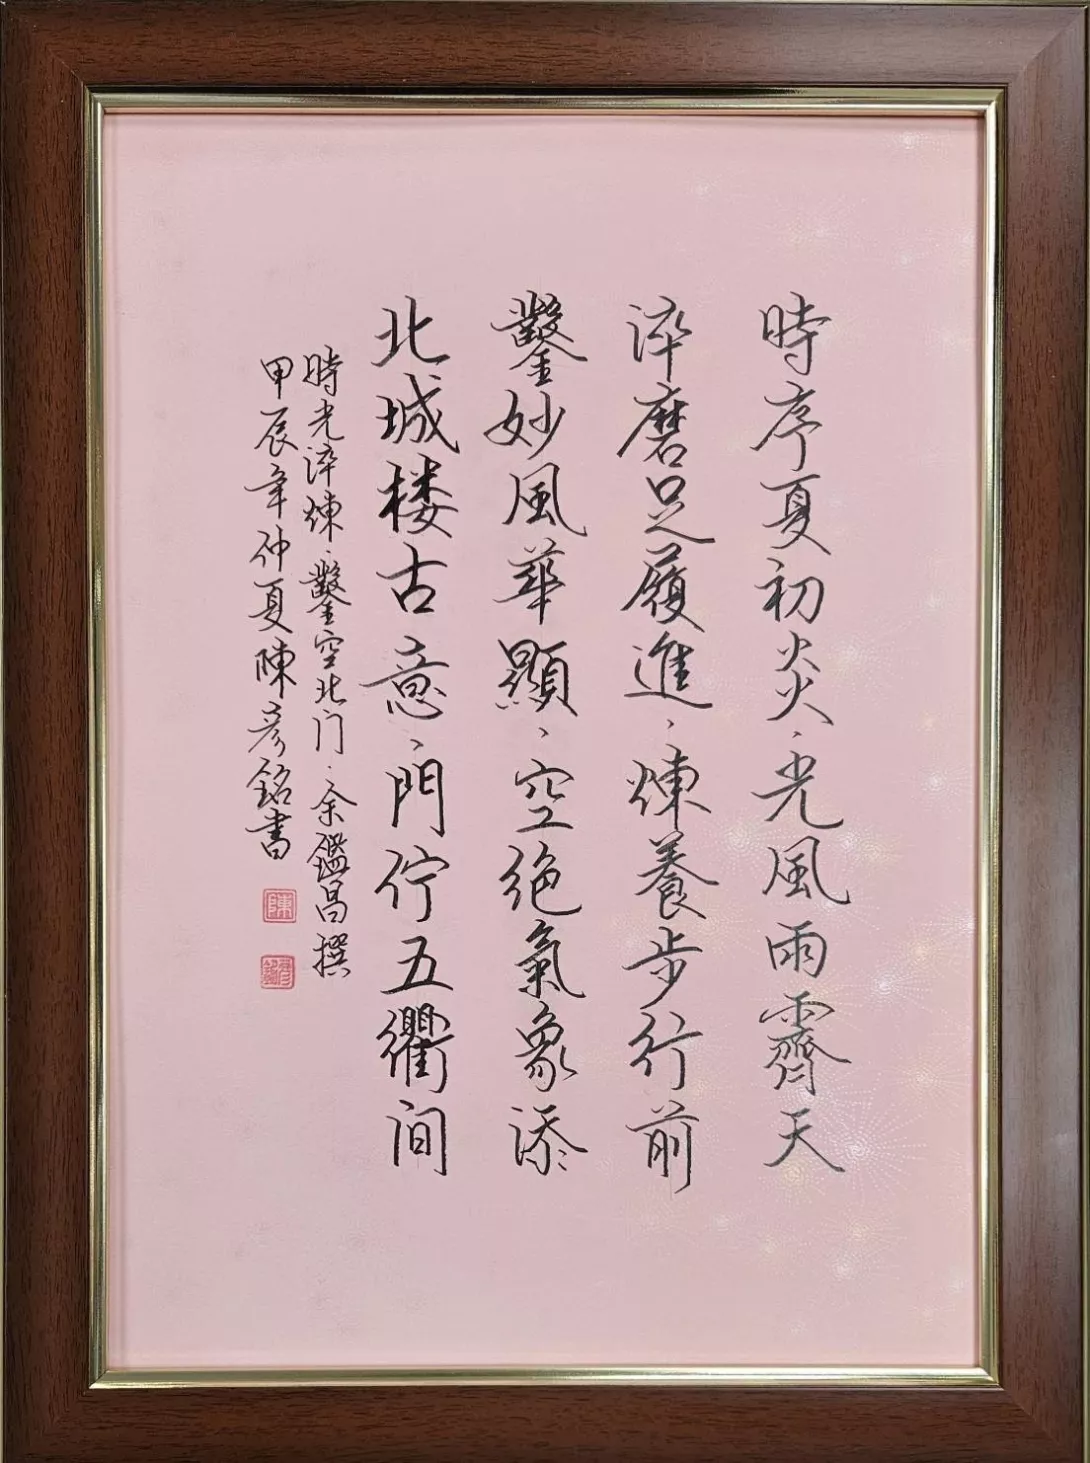 時序夏初炎、光風雨霽天
淬磨足履進、煉養步行前
鑿妙風華顯、空絕氣象添
北城楼古意、門佇五衢间
時光淬煉、鑿空北门、余鑑昌撰
甲辰年仲夏陳彦銘書
陳
彦銘